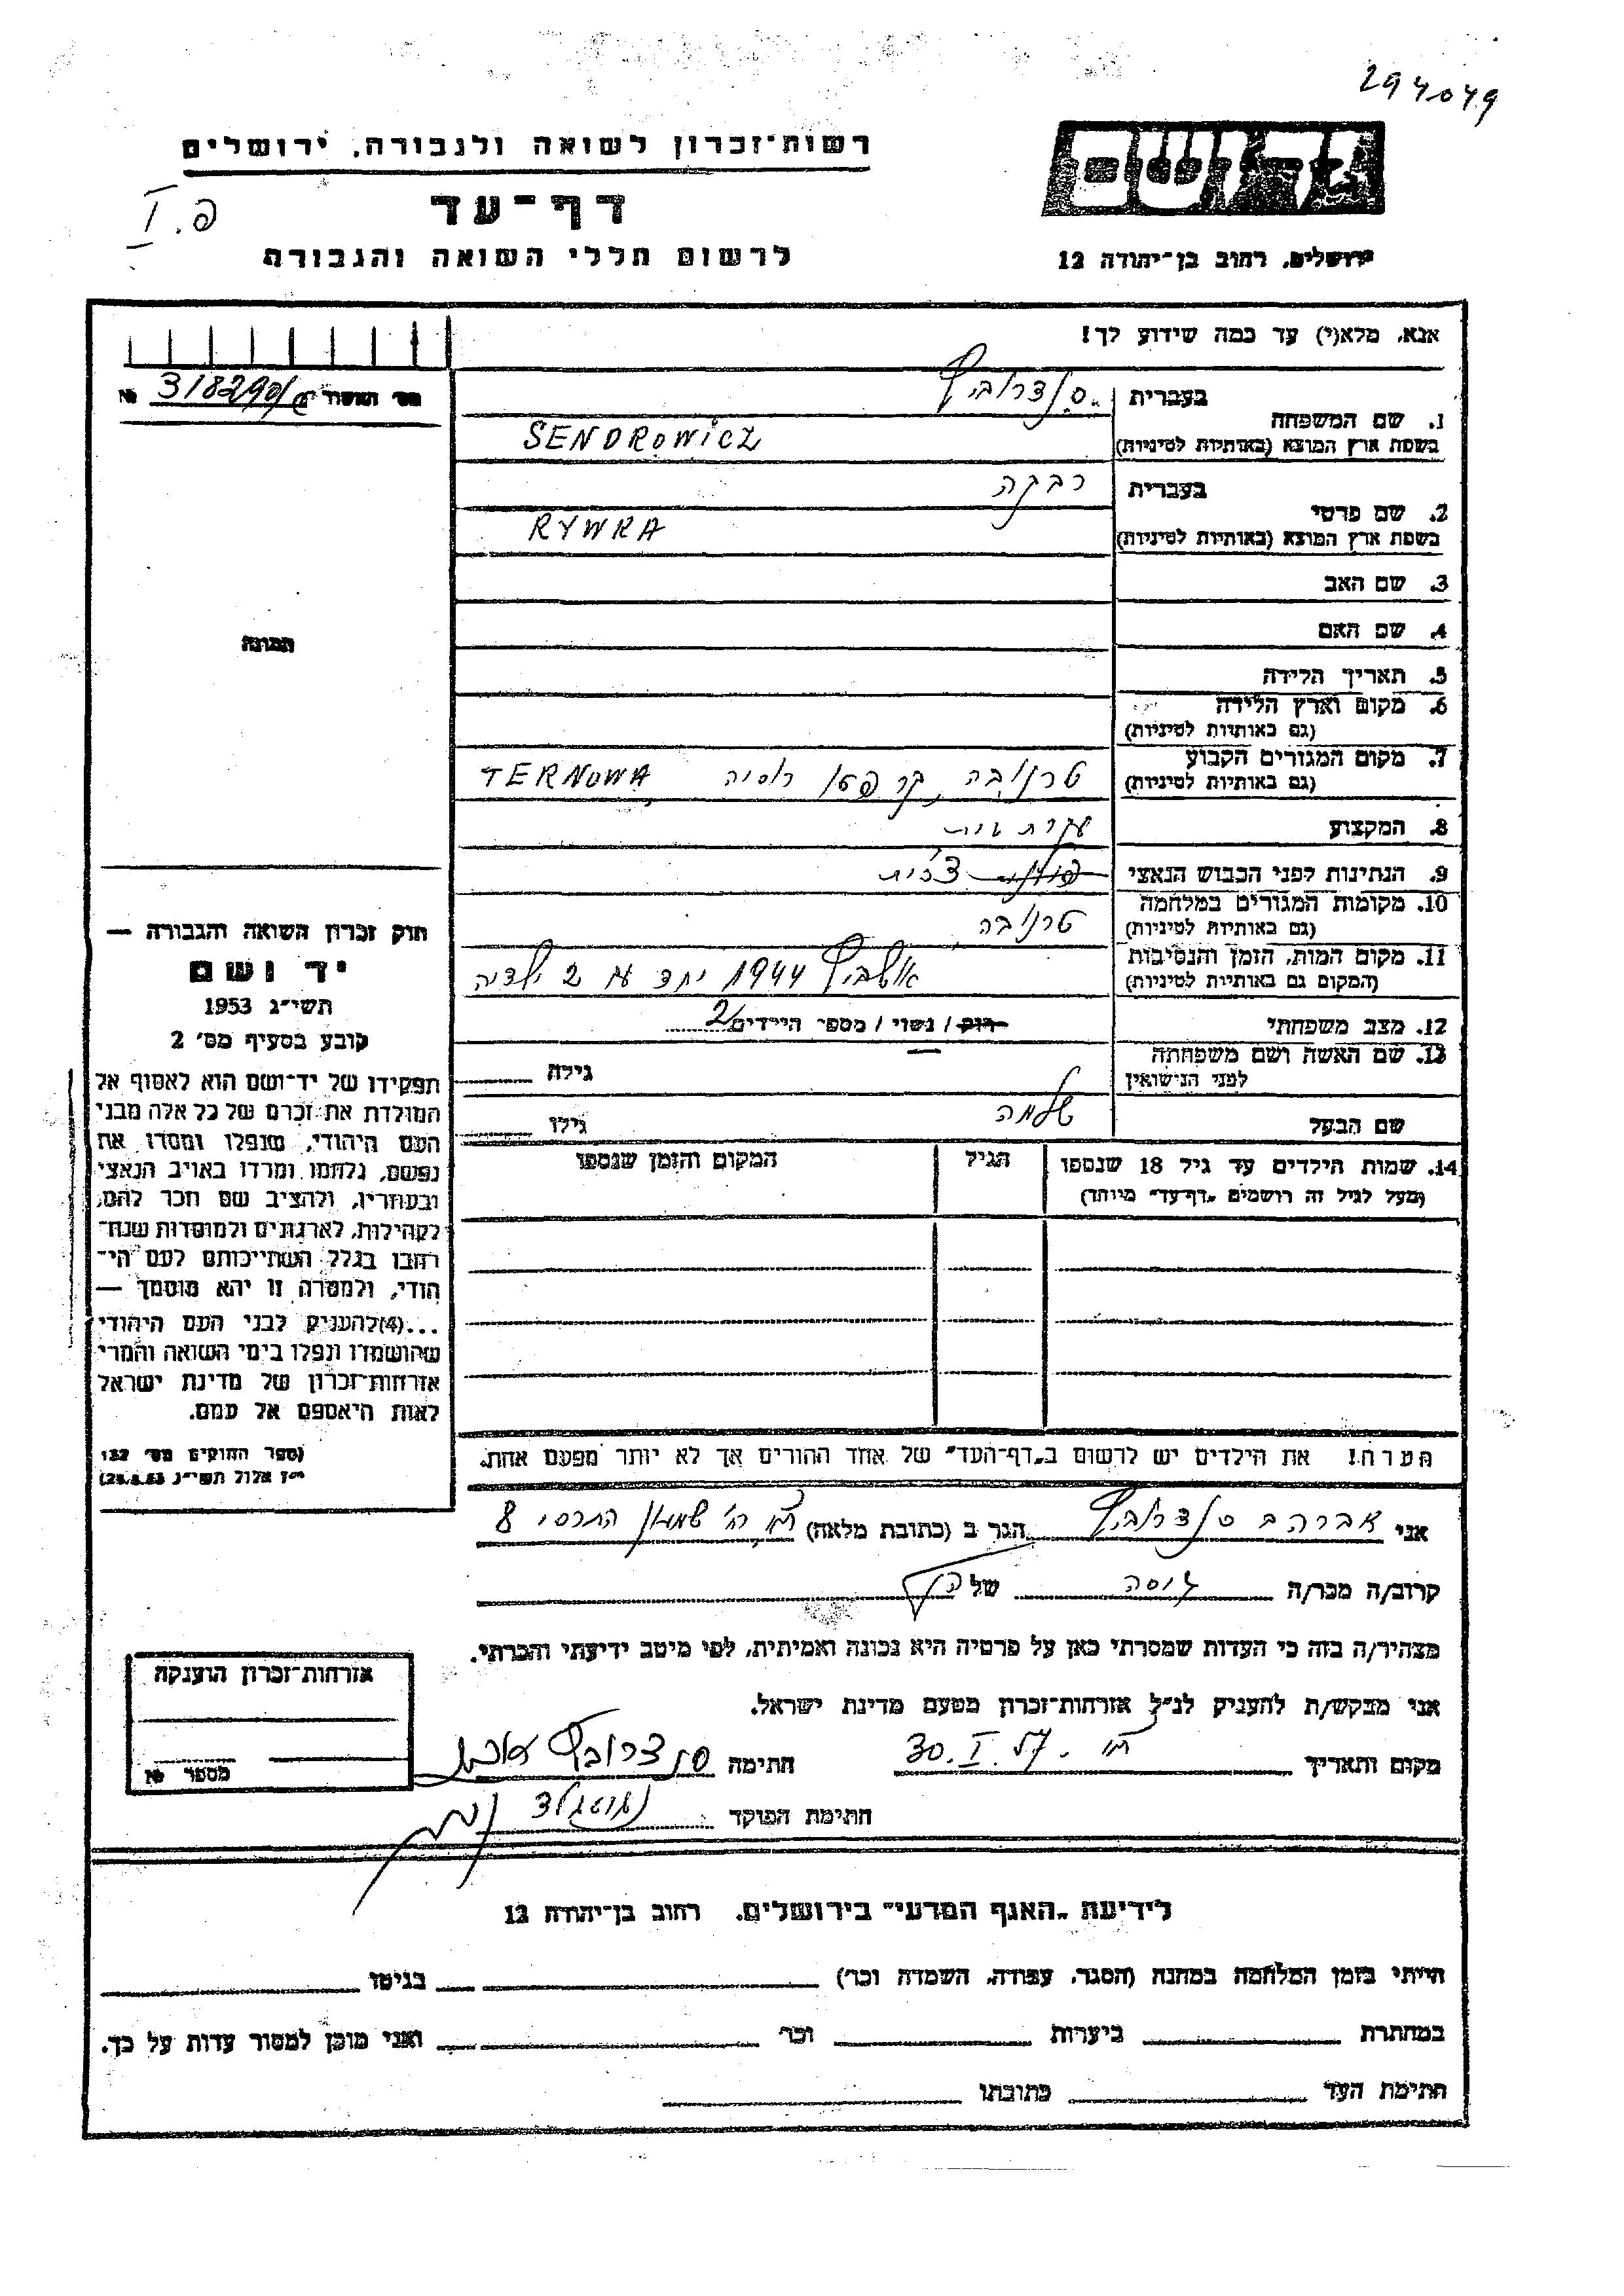 294049
רשות־זכרון לשואה ולגבורה, ירושלים
דף־עד
פ. I
לרשום חללי השואה והגבורה
ירושלים, רחוב בן־יהודה 12
אנא, מלא(י) עד כמה שידוע לך!
1. שם המשפחה
בעברית סנדרוביץ
בשפת ארץ המוצא (באותיות לטיניות) SENDROWICZ
2. שם פרטי
בעברית רבקה
בשפת ארץ המוצא (באותיות לטיניות) RYWKA
3. שם האב
4. שם האם
5. תאריך הלידה
6. מקום וארץ הלידה
(גם באותיות לטיניות)
7. מקום המגורים הקבוע
(גם באותיות לטיניות) טרנובה, קרפטו רוסיה TERNOWA
8. המקצוע עקרת בית
9. הנתינות לפני הכבוש הנאצי צ'כית
10. מקומות המגורים במלחמה
(גם באותיות לטיניות) טרנובה
11. מקום המות, הזמן והנסיבות
(המקום גם באותיות לטיניות) אושביץ 1944 יחד עם 2 ילדיה
12. מצב משפחתי רווק / נשוי / מספר הילדים 2
13. שם האשה ושם משפחתה
לפני הנישואין גילה
שם הבעל שלמה גילו
14. שמות הילדים עד גיל 18 שנספו
(מעל לגיל זה רושמים „דף־עד" מיוחד)
הגיל
המקום והזמן שנספו
הערה! את הילדים יש לרשום ב„דף־העד" של אחד ההורים אך לא יותר מפעם אחת.
318290
תמונה
חוק זכרון השואה והגבורה —
יד ושם
תשי״ג 1953
קובע בסעיף מס׳ 2
תפקידו של יד־ושם הוא לאסוף אל
המולדת את זכרם של כל אלה מבני
העם היהודי, שנפלו ומסרו את
נפשם, נלחמו ומרדו באויב הנאצי
ובעוזריו, ולהציב שם וזכר להם,
לקהילות, לארגונים ולמוסדות שנח־
רבו בגלל השתייכותם לעם הי־
הודי, ולמטרה זו יהא מוסמך —
...(4)להעניק לבני העם היהודי
שהושמדו ונפלו בימי השואה והמרי
אזרחות־זכרון של מדינת ישראל
לאות היאספם אל עמם.
(ספר החוקים מס׳ 132
י״ז אלול תשי״ג 28.8.53)
אני אברהם סנדרוביץ הגר ב (כתובת מלאה) שמעון התרסי 8
קרוב/ה מכר/ה גיסה של הנ״ל
מצהיר/ה בזה כי העדות שמסרתי כאן על פרטיה היא נכונה ואמיתית, לפי מיטב ידיעתי והכרתי.
אני מבקש/ת להעניק לנ״ל אזרחות־זכרון מטעם מדינת ישראל.
מקום ותאריך 30. I. 57 חתימה סנדרוביץ
חתימת הפוקד
אזרחות־זכרון הוענקה
מספר №
לידיעת „האגף המדעי" בירושלים, רחוב בן־יהודה 12
הייתי בזמן המלחמה במחנה (הסגר, עבודה, השמדה וכו׳) בגיטו
במחתרת ביערות וכו׳ ואני מוכן למסור עדות על כך.
חתימת העד כתובתו